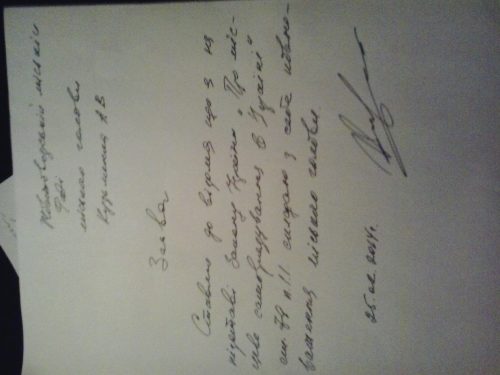 Жовтоводській міській
Раді
міського голови
Заява
Ставлю до відома що з на
підставі Закону України „Про міс-
цеве самоврядування в Україні“
ст 79 п 1.1 складаю з себе повно-
важення міського голови
25.02.2014г.